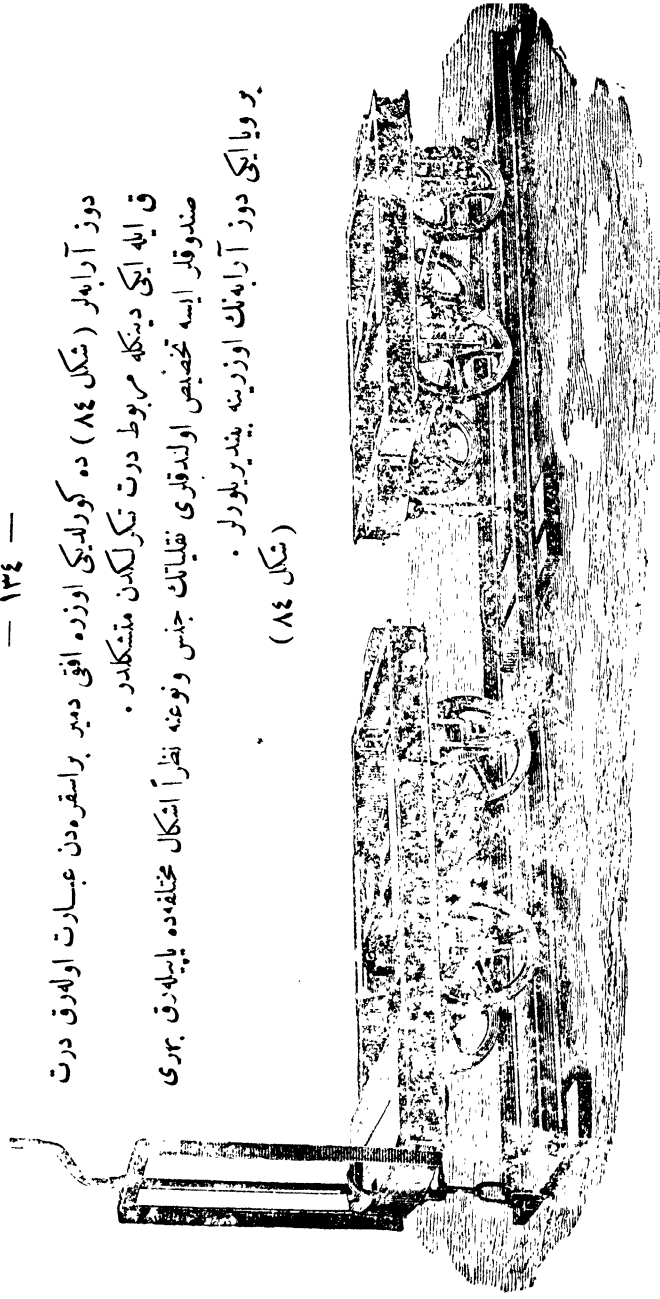 — ١٣٤ —
دوز آرابه‌لر ( شكل ٨٤ ) ده كورلديكى اوزره افقى دمير براسقره‌دن عبارت اوله‌رق درت
ق ايله ايكى دينكله مربوط درت تكرلكدن متشكلدر .
صندوقلر ايسه تخصيص اولندقلرى نقلياتك جنس ونوعنه نظراً اشكال مختلفه‌ده ياپيله‌رق بهرى
بر ويا ايكى دوز آرابه‌نك اوزرينه بينديريلورلر .
( شكل ٨٤ )